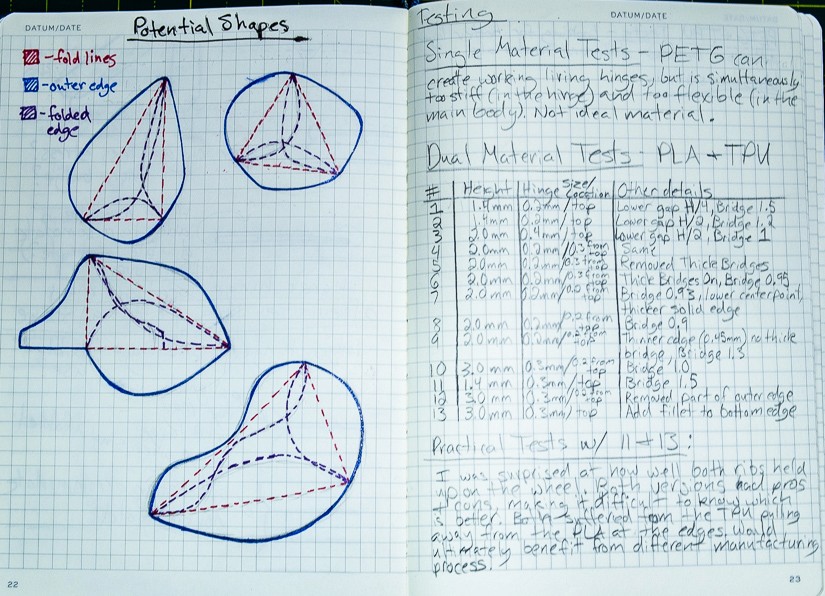 DATUM/DATE
Potential Shapes
- fold lines
- outer edge
- folded edge
22
Testing
DATUM/DATE
Single Material Tests - PETG can
create working living hinges, but is simultaneously
too stiff (in the hinge) and too flexible (in the
main body). Not ideal material.
Dual Material Tests - PLA + TPU
# Height Hinge size/location Other details
1 1.4mm 0.2mm/top Lower gap H/4, Bridge 1.5
2 1.4mm 0.2mm/top Lower gap H/2, Bridge 1.2
3 2.0mm 0.4mm/top Lower gap H/2, Bridge 1
4 2.0mm 0.2mm/0.3 from top Same
5 2.0mm 0.2mm/0.3 from top Removed Thick Bridges
6 2.0mm 0.2mm/0.3 from top Thick Bridges On, Bridge 0.95
7 2.0mm 0.2mm/ from top Bridge 0.93, lower centerpoint,
thicker solid edge
8 2.0mm 0.2mm/0.2 from top Bridge 0.9
9 2.0mm 0.2mm/0.2 from top Thinner edge (0.45mm) no thick
bridge, Bridge 1.3
10 3.0mm 0.3mm/0.2 from top Bridge 1.0
11 1.4mm 0.3mm/top Bridge 1.5
12 3.0mm 0.3mm/ from top Removed part of outer edge
13 3.0mm 0.3mm/top Add fillet to bottom edge
Practical Tests w/ 11 + 13:
I was surprised at how well both ribs held
up on the wheel. Both versions had pros
+ cons, making it difficult to know which
is better. Both suffered from the TPU pulling
away from the PLA at the edges. Would
ultimately benefit from different manufacturing
process.
23